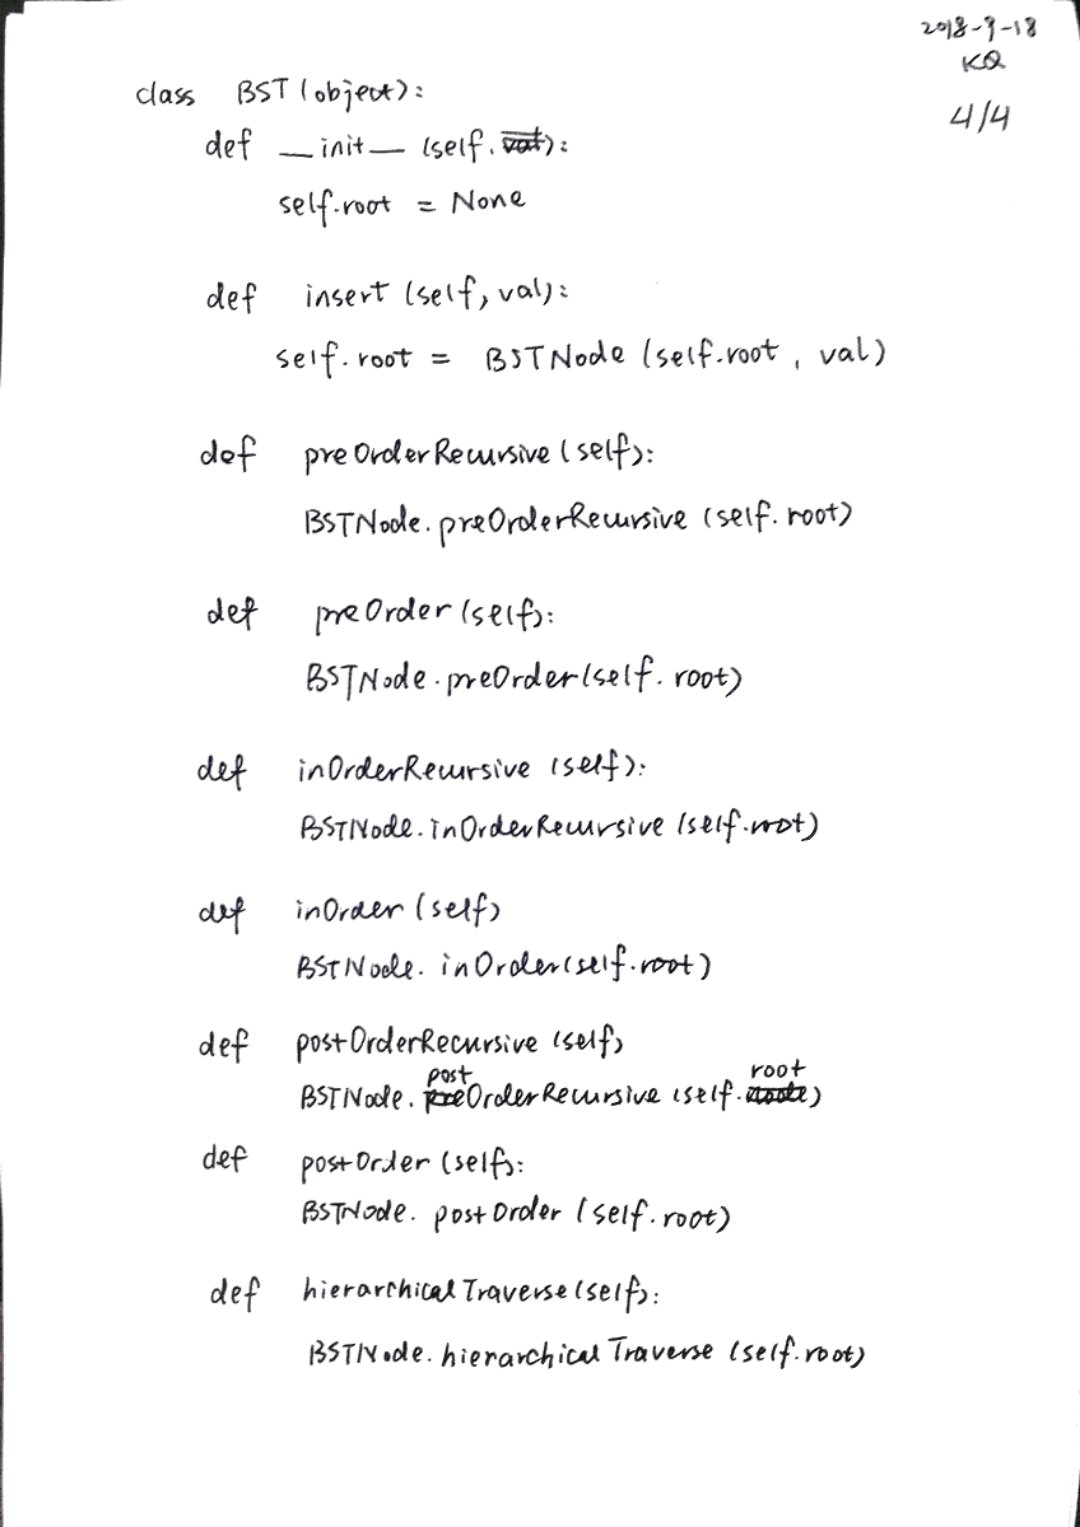 2018-9-18
KQ
4/4
class BST (object):
def __init__ (self, val):
self.root = None
def insert (self, val):
self.root = BSTNode (self.root, val)
def preOrderRecursive (self):
BSTNode.preOrderRecursive (self.root)
def preOrder (self):
BSTNode.preOrder (self.root)
def inOrderRecursive (self):
BSTNode.inOrderRecursive (self.root)
def inOrder (self)
BSTNode.inOrder (self.root)
def postOrderRecursive (self)
post root
BSTNode.preOrderRecursive (self.node)
def postOrder (self):
BSTNode.postOrder (self.root)
def hierarchicalTraverse (self):
BSTNode.hierarchicalTraverse (self.root)